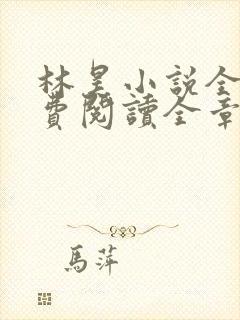 林昊小説全
費閱讀全章
馬萍